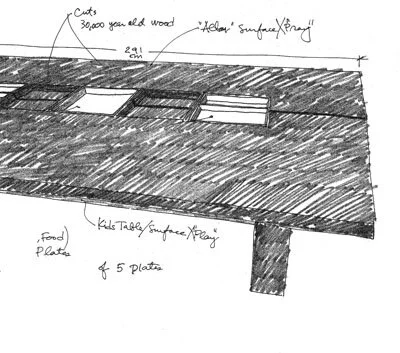 Cuts
30,000 year old wood
"Altar" Surface X "Pray"
291
cm
Kids Table/Surface X "Play"
, Food)
Plates
of 5 plates